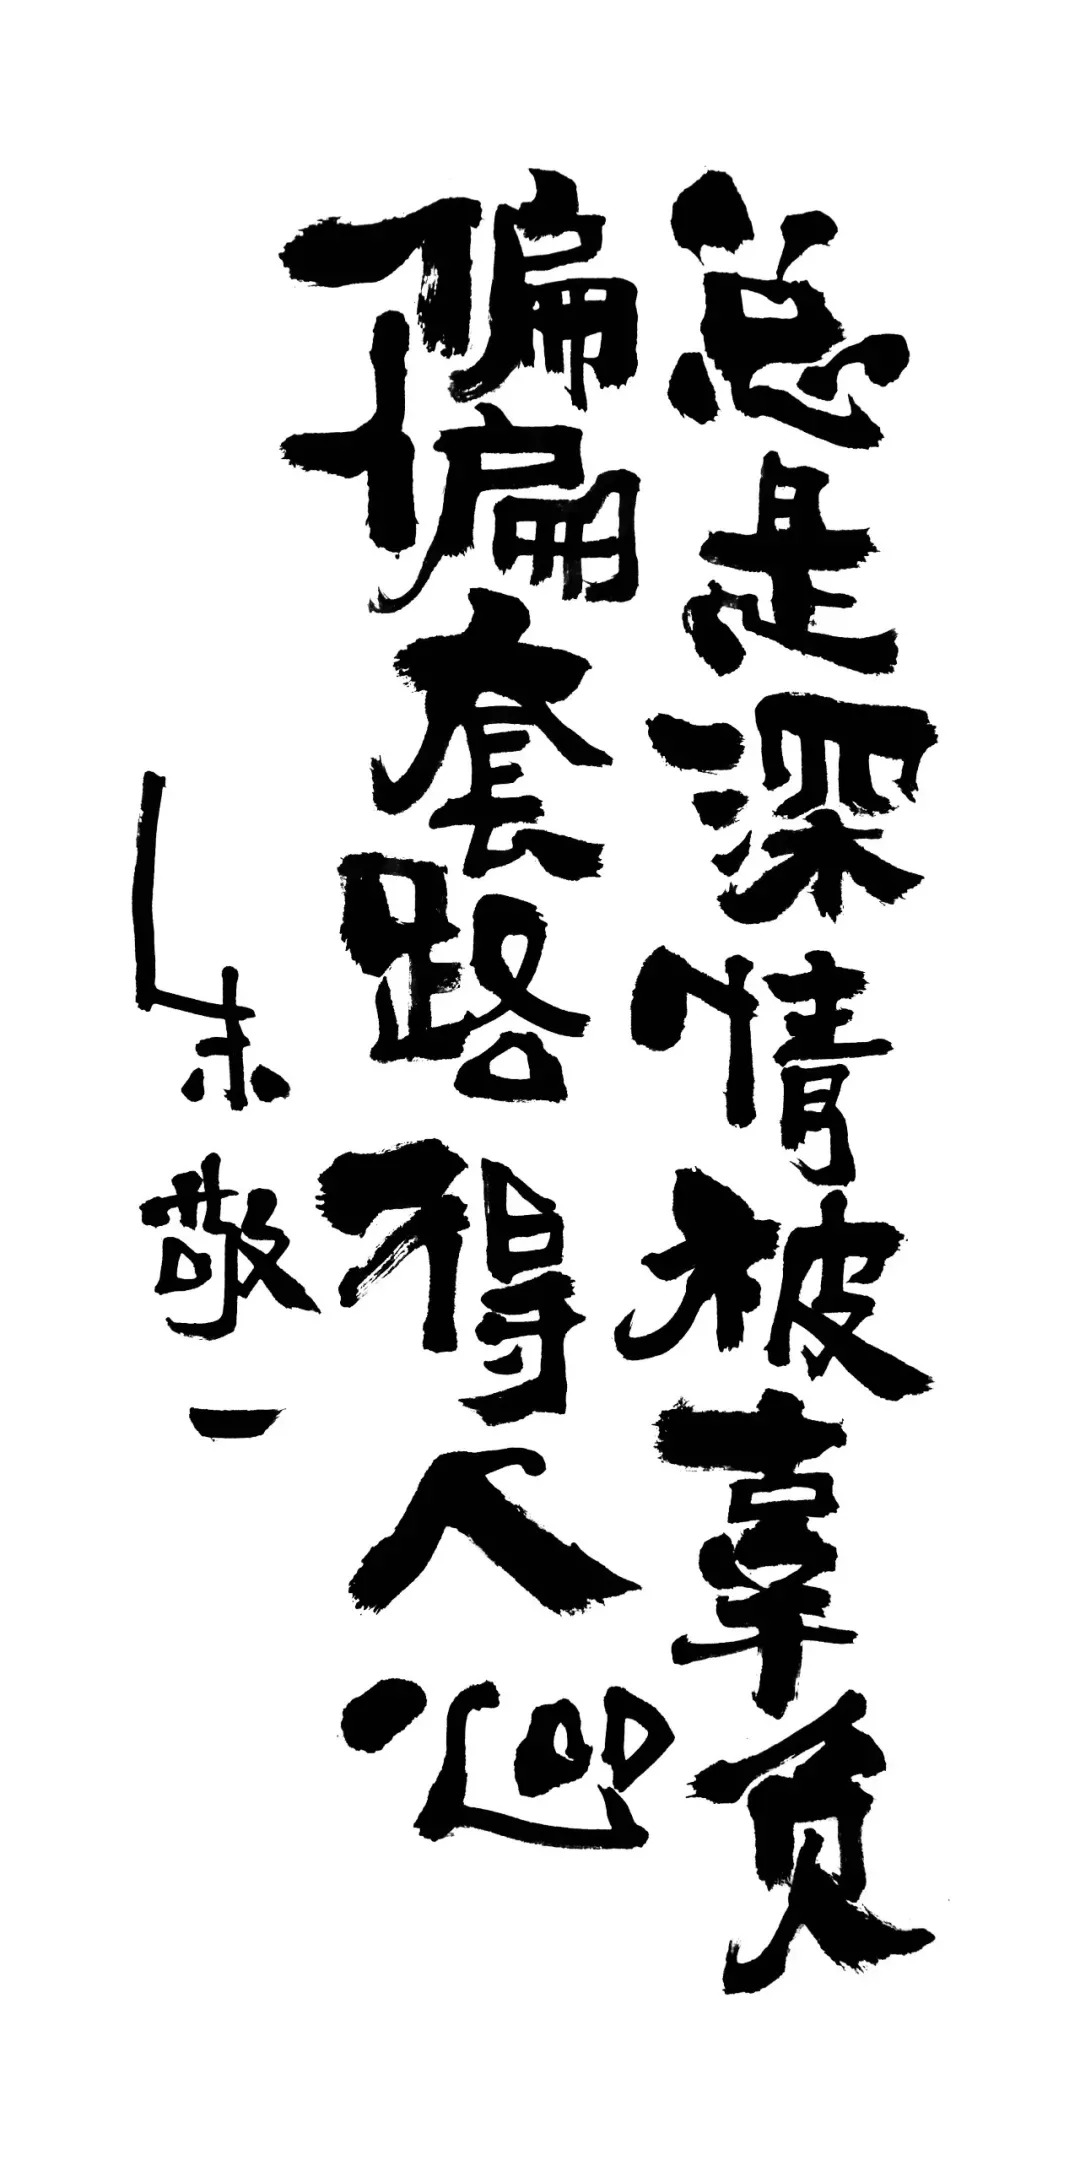 总是深情被辜负
偏偏套路得人迎
朱敬一